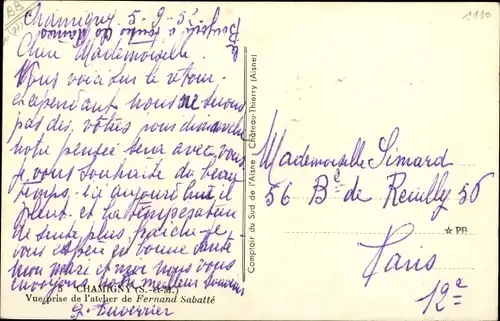 1110
Chamigny, 5-9-5
Chère Mademoiselle.
Vous voici sur le retour
et cependant nous ne
pas dis, vous dimanche
notre pensée sera avec vous
je vous souhaite du beau
temps ici aujourd'hui il
pleut et la température
de sente plus fraiche je
vous espère en bonne santé
mon mari et moi nous vous
envoyons meilleurs souvenirs
5 CHAMIGNY (S.-et-M.)
Vue prise de l'atelier de Fernand Sabatté
Comptoir du Sud de l'Aisne, Château-Thierry (Aisne)
Mademoiselle Simard
56 Bd de Reuilly 56
★ PB
Paris
12e